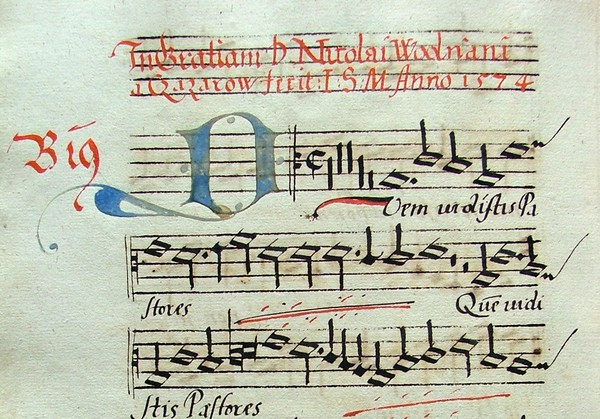 In Gratiam D Nicolai Wodniani
a Czazarow fecit I S M Anno 1574
Big
QVem vidistis Pa
stores Quē vidi
stis Pastores